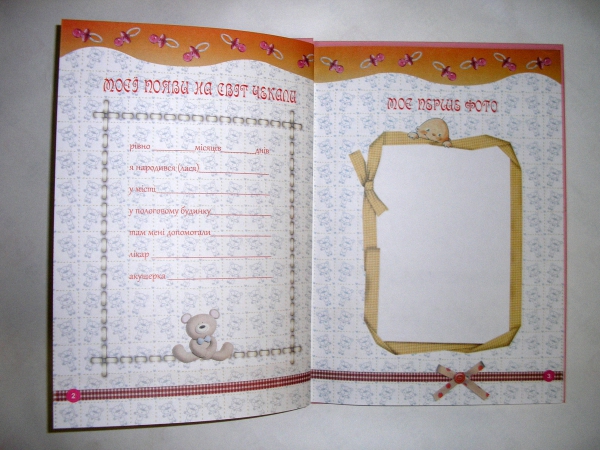 МОЄЇ ПОЯВИ НА СВІТ ЧЕКАЛИ
рівно ________ місяців ________ днів
я народився (лася) ________
у місті ________
у пологовому будинку ________
там мені допомогали ________
лікар ________
акушерка ________
2
МОЄ ПЕРШЕ ФОТО
3